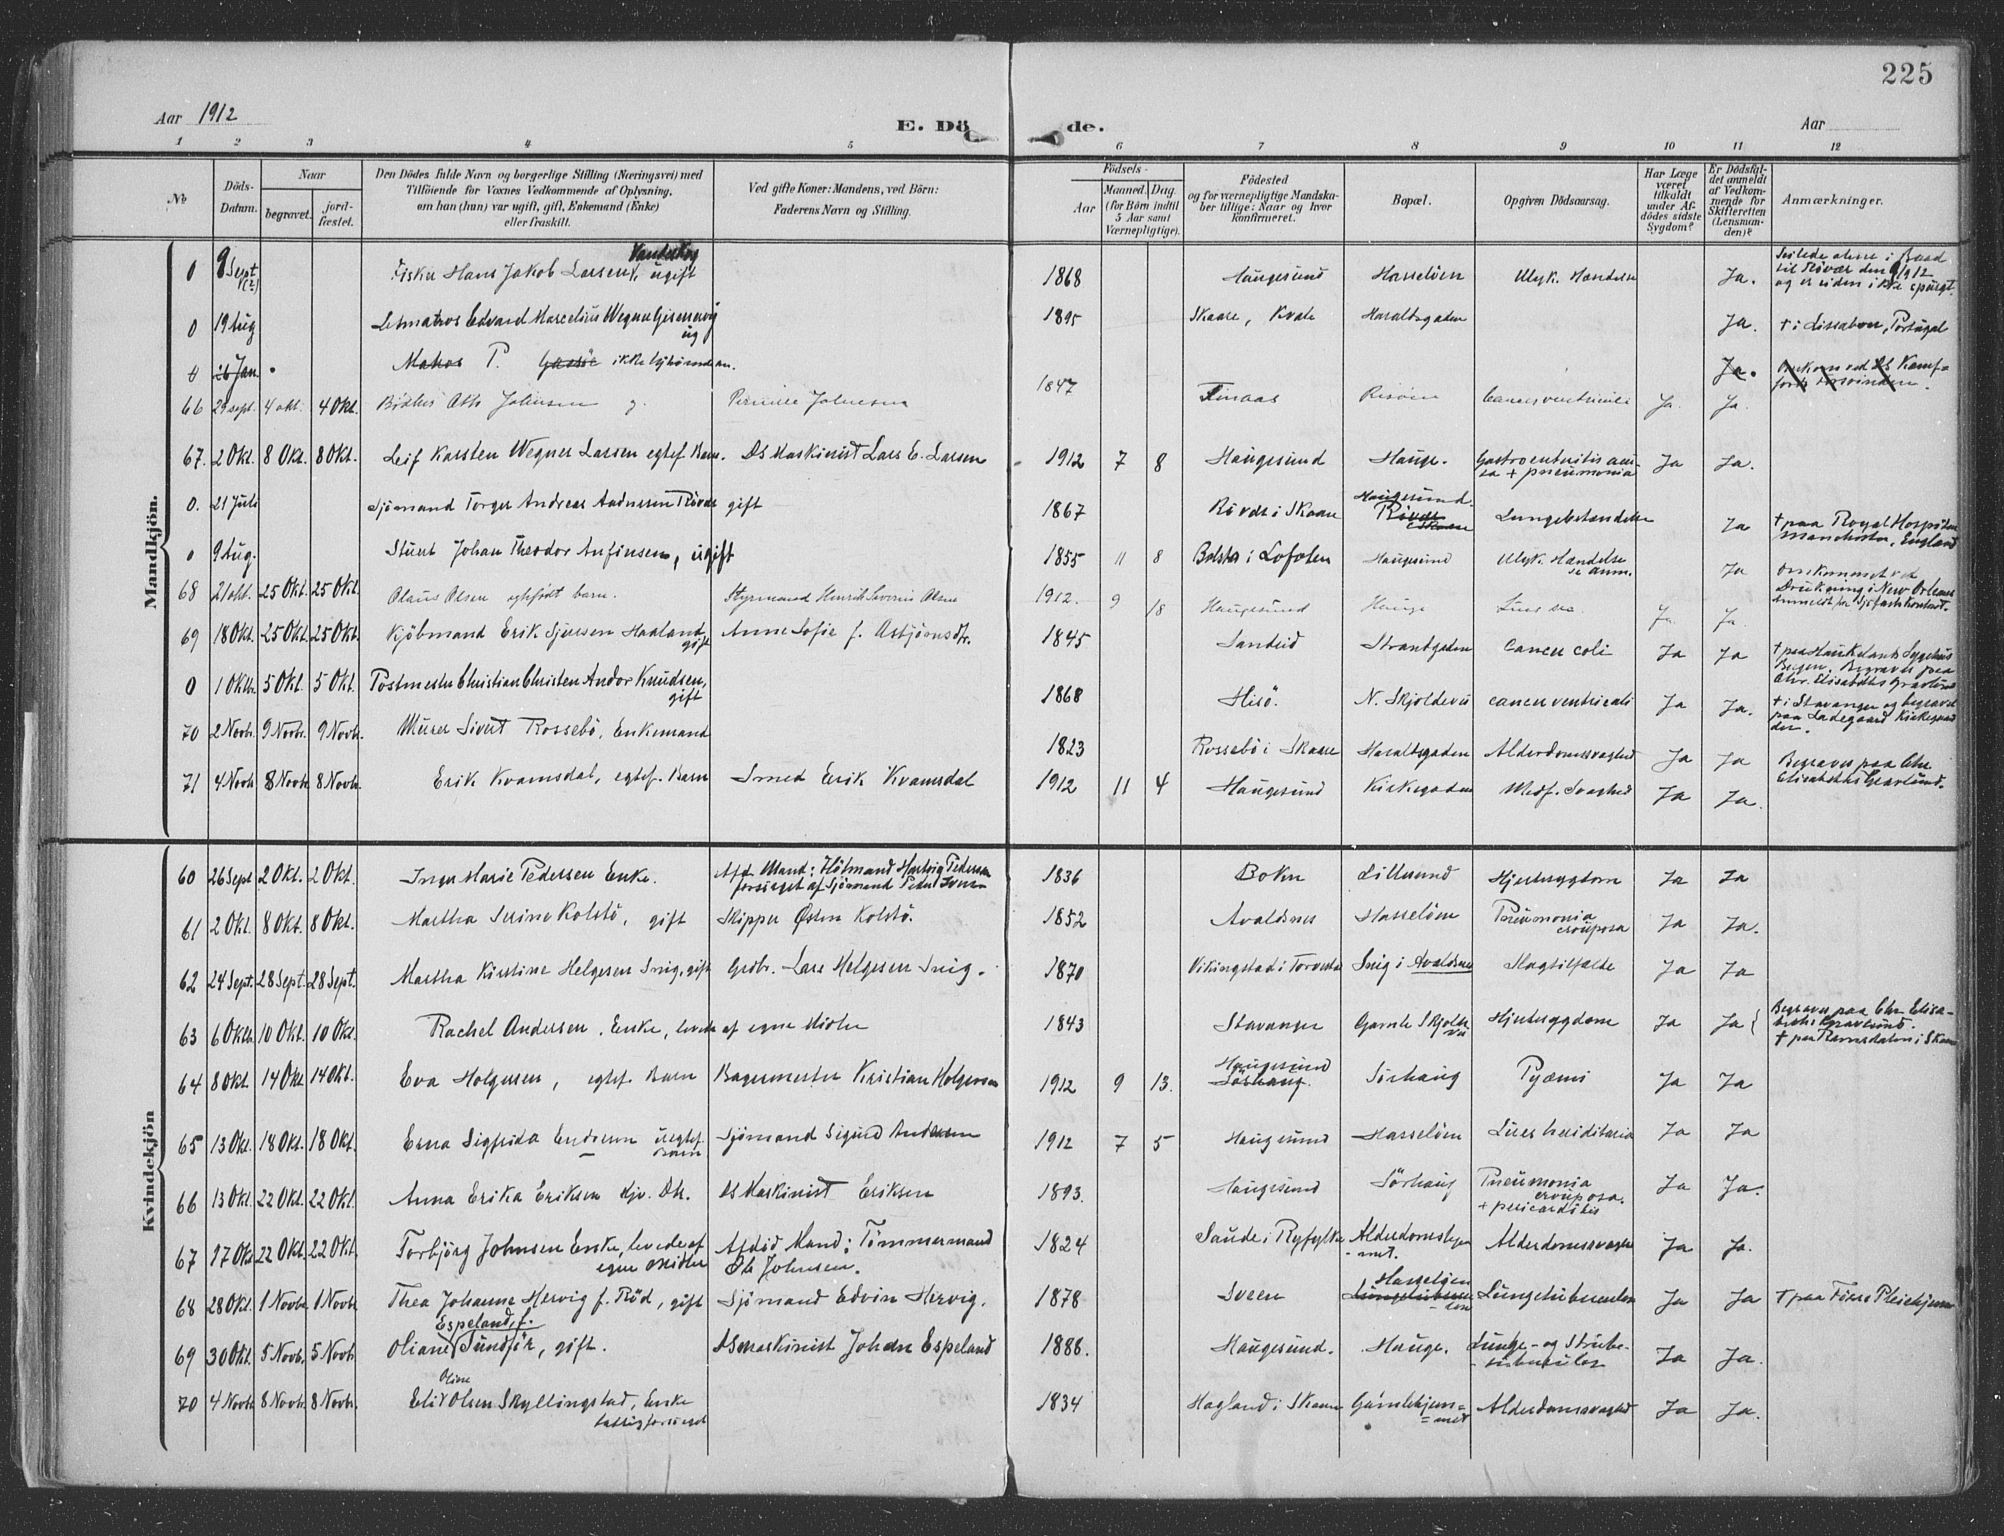 225
Aar 1912
E. Döde.
Aar
1 2 3 4 5 6 7 8 9 10 11 12
No
Döds-Datum.
Naar
begravet.
jord-fæstet.
Den Dödes fulde Navn og borgerlige Stilling (Næringsvei) med
Tilföiende for Voxnes Vedkommende af Oplysning,
om han (hun) var ugift, gift, Enkemand (Enke)
eller fraskilt.
Ved gifte Koner: Mandens, ved Börn:
Faderens Navn og Stilling.
Födsels-
Aar
Maaned. Dag.
(for Börn indtil
5 Aar samt
Værnepligtige).
Födested
og for værnepligtige Mandska-
ber tillige: Naar og hvor
konfirmeret.
Bopæl.
Opgiven Dödsaarsag.
Har Læge
været
tilkaldt
under Af-
dödes sidste
Sygdom?
Er Dödsfal-
det anmeldt
af Vedkom-
mende for
Skifteretten
(Lensman-
den)?
Anmærkninger.
Mandkjön.
0 9 Sept Fisker Hans Jakob Larsen, ugift 1868 Haugesund Hasseløen Ulyk. Hændelse Ja. Seilede alene i Baad
til Røvær den 9/9 1912
og er siden ikke spurgt.
0 19 Aug Letmatros Edvard Marcelius Wegner ug 1895 Skaare, Kvale Haraldsgaden Ja. † i Lissabon, Portugal
0 26 Jan. P. ikke Ja.
66 29 sept. 4 okt. 4 Okt. Bødker Johnsen g. Pernille Johnesen 1847 Tinaas Risøen Cancer ventriculi Ja. Ja.
67. 2 Okt. 8 Okt. 8 Okt. Leif Karsten Wegner Larsen egtef. Barn. DS Maskinist Lars E. Larsen 1912 7 8 Haugesund Hauge. Gastroenteritis acu-
ta + pneumonia Ja Ja.
0. 21 Juli Sjømand Torger Andreas Aadnesen Røvær gift 1867 Røvær i Skaare Haugesund Lungebetændelse Ja † paa Royal Hospital
Manchester, England
0 9 Aug. Stuert Johan Theodor Anfinsen, ugift 1855 11 8 i Lofoten Haugesund Ulyk. Hændelse
se anm. Ja omkommet ved
Drukning i New Orleans
68 21 okt. 25 Okt. 25 Okt. Olaus Olsen egtefødt barn. Styrmand Henrik Severin Olsen 1912. 9 18 Haugesund Hauge Ja. Ja.
69 18 Okt. 25 Okt. 25 Okt. Kjøbmand Erik Sjursen Haaland, gift Anne Sofie f. Asbjørnsdtr. 1845 Sandeid Strandgaden cancer coli Ja Ja † paa Haukelands Sygehus
Bergen. Begraves paa
Chr. Elisabeths Gravlund
0 1 Oktb. 5 Okt. 5 Okt. Postmester Christian Christen Andor Knudsen, gift 1868 Hisø. N. Skjoldevei cancer ventriculi Ja Ja. † i Stavanger og begravet
paa Ladegaard Kirkegaar-
den.
70 2 Novb. 9 Novb. 9 Novb. Murer Sivert Rossebø, Enkemand 1823 Rossebø i Skaare Haraldsgaden Alderdomssvaghed Ja Ja Begraves paa Chr.
Elisabeths Gravlund.
71 4 Novb 8 Novb 8 Novb. Erik Kvamsdal, egtef. Barn Smed Erik Kvamsdal 1912 11 4 Haugesund Kirkegaden Medf. Svaghed Ja Ja.
Kvindekjön
60 26 Sept 2 Okt. 2 Okt. Inger Marie Pedersen Enke. Afd. Mand: Hartvig Pedersen
forsørget af Sjømand 1836 Bokn Lillesund Hjertesygdom Ja Ja
61 2 Okt. 8 Okt. 8 Okt. Martha Serine Kolstø, gift Skipper Østen Kolstø. 1852 Avaldsnes Hasseløen Pneumonia
crouposa Ja Ja.
62 24 Sept. 28 Sept 28 Sept. Martha Kirstine Helgesen Snig, gift Grdbr. Lars Helgesen Snig. 1870 Vikingstad i Torvestad Snig i Avaldsnes Slagtilfælde Ja Ja
63 6 Oktb. 10 Okt. 10 Okt. Rachel Andersen, Enke, levede af egne Midler 1843 Stavanger Gamle Skjolde-
vei Hjertesygdom Ja Ja Begraves paa Chr. Elisa-
beths Gravlund.
† paa Ramsdalen i Skaare
64 8 Okt. 14 Okt 14 Okt. Eva Holgersen, egtef. Barn Bagermester Kristian Holgersen 1912 9 13. Haugesund
Sørhaug. Sørhaug Pyæmi Ja Ja
65 13 Okt. 18 Okt. 18 Okt. Erna Sigfrida Andersen uegtef.
Barn Sjømand Sigurd Andersen 1912 7 5 Haugesund Hasseløen Lues hereditaria Ja Ja
66 13 Okt. 22 Okt. 22 Okt. Anna Erika Eriksen Hjv. Dtr. DS Maskinist Eriksen 1893. Haugesund Sørhaug Pneumonia
crouposa.
+ pericarditis Ja Ja.
67 17 Okt 22 Okt. 22 Okt. Torbjørg Johnsen Enke, levede af
egne Midler Afdød Mand: Tømmermand
Ole Johnsen. 1824 Saude i Ryfylke Alderdomshjem-
met. Alderdomssvaghed Ja Ja.
68 28 Okt. 1 Novb. 1 Novb. Thea Johanne Hervig f. Rød, gift Sjømand Edvin Hervig. 1878 Sveen Hasseløen Lungetuberculose Ja Ja † paa Tokse Pleiehjem
69 30 Okt. 5 Novb. 5 Novb. Oliane Espeland f. Sundfør, gift. DS Maskinist Johan Espeland 1888. Haugesund. Hauge. Lunge- og Strube-
tuberculose Ja Ja.
70 4 Novb. 8 Novb. 8 Novb. Eli Oline Olsen Skyllingstad, Enke
fattigforsørget 1834 Hagland i Skaare Gamlehjem-
met Alderdomssvaghed Ja Ja.